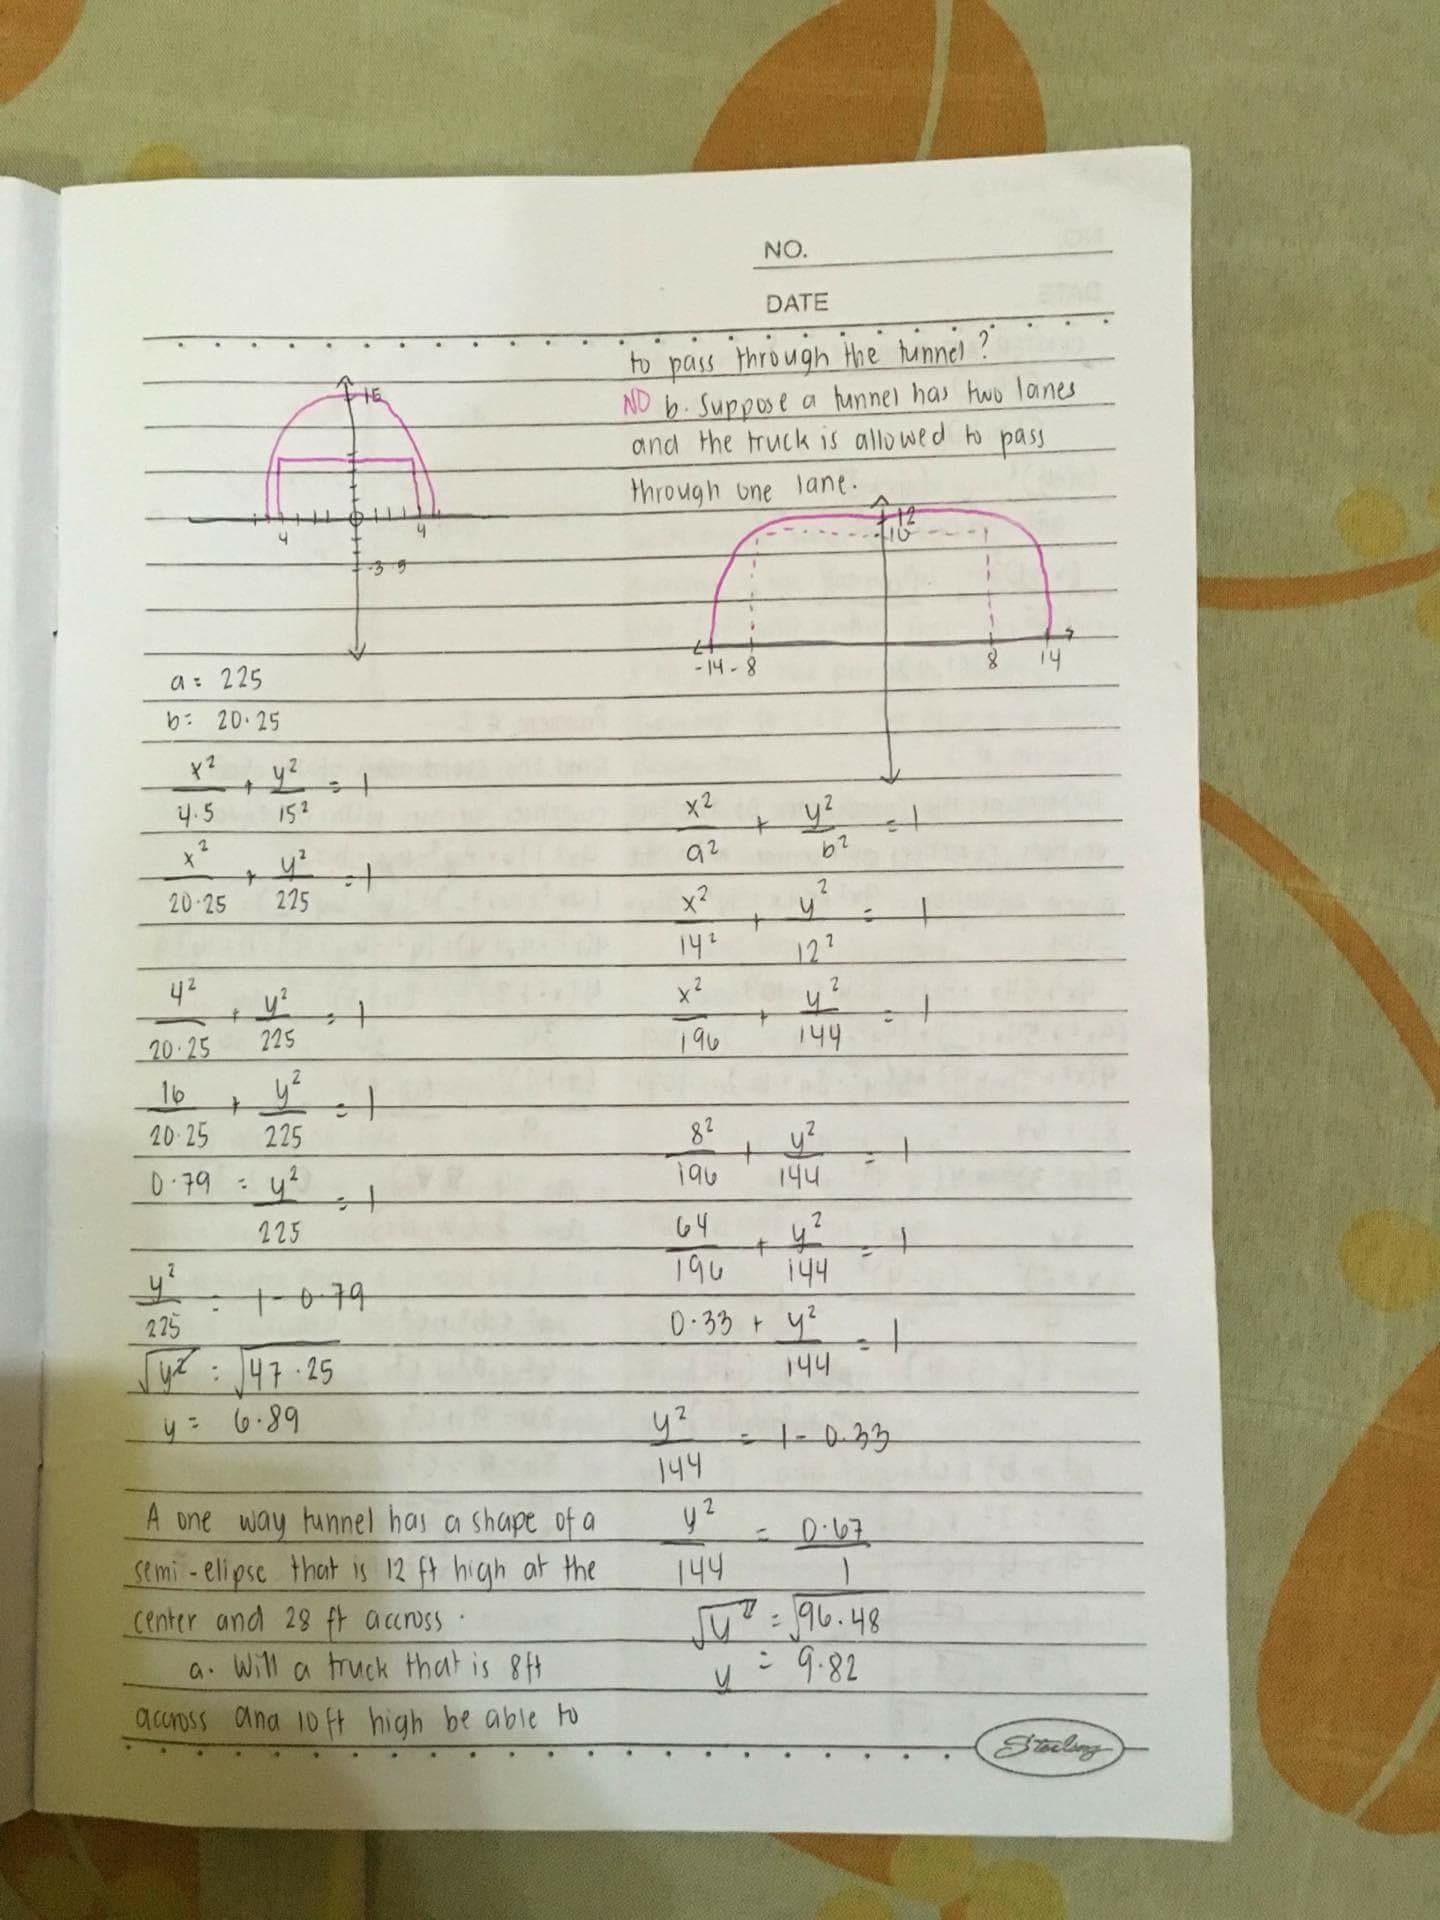 NO.
DATE
15
4
4
-3.5
a= 225
b= 20.25
x²/4.5 + y²/15² = 1
x²/20.25 + y²/225 = 1
4²/20.25 + y²/225 = 1
16/20.25 + y²/225 = 1
0.79 = y²/225 = 1
y²/225 = 1 - 0.79
√y² = √47.25
y = 6.89
A one way tunnel has a shape of a
semi-elipse that is 12 ft high at the
center and 28 ft accross.
a. Will a truck that is 8ft
accross and 10ft high be able to
to pass through the tunnel?
NO b. Suppose a tunnel has two lanes
and the truck is allowed to pass
through one lane.
12
10
-14 -8 8 14
x²/a² + y²/b² = 1
x²/14² + y²/12² = 1
x²/196 + y²/144 = 1
8²/196 + y²/144 = 1
64/196 + y²/144 = 1
0.33 + y²/144 = 1
y²/144 = 1 - 0.33
y²/144 = 0.67/1
√y² = √96.48
y = 9.82
Sterling